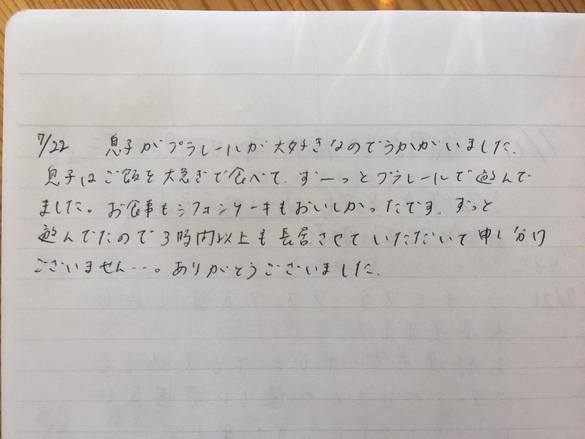 7/22 息子がプラレールが大好きなのでうかがいました。
息子はご飯を大急ぎで食べて、ずーっとプラレールで遊んで
ました。お食事もシフォンケーキもおいしかったです。ずっと
遊んでたので3時間以上も長居させていただいて申し分け
ございません…。ありがとうございました。